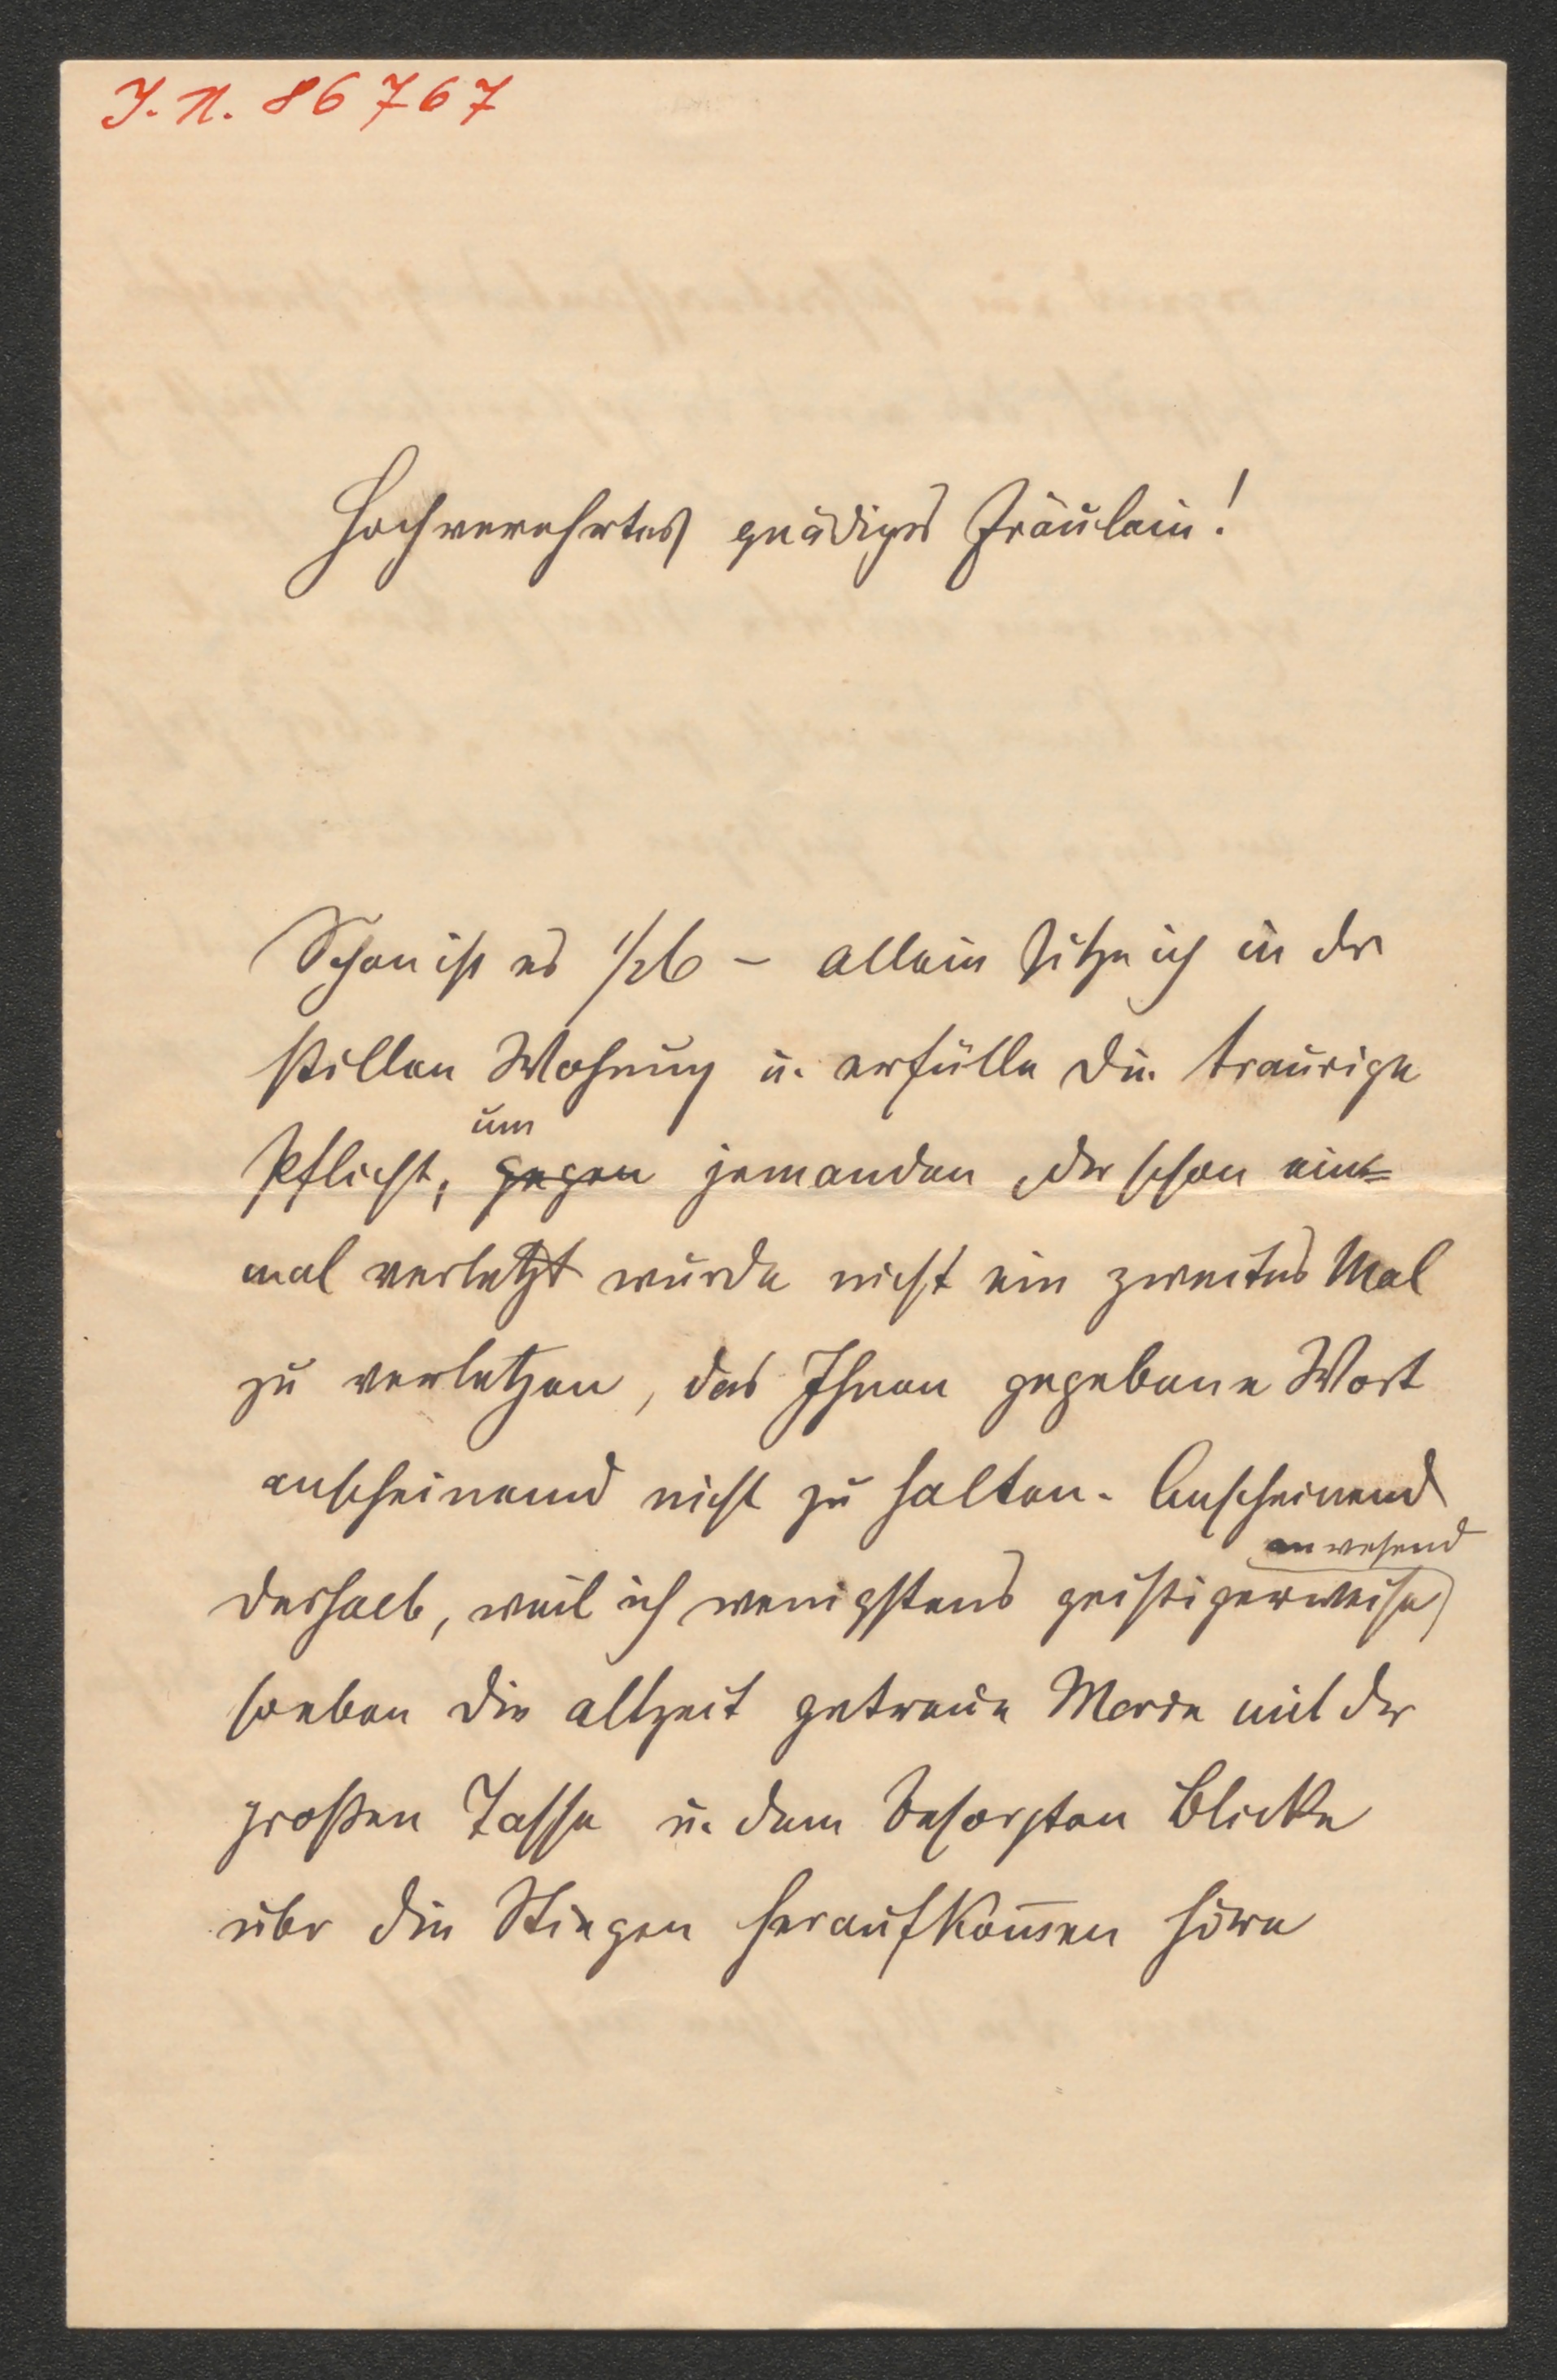 J. N. 86767
Hochverehrtes gnädiges Fräulein!
Schon ist es 1/2 6 – allein sitze ich in der
stillen Wohnung u. erfülle die traurige
Pflicht, um gegen jemanden der schon ein=
mal verletzt wurde nicht ein zweites Mal
zu verletzen, das Ihnen gegebene Wort
anscheinend nicht zu halten. Anscheinend
deshalb, weil ich wenigstens geistigerweise anwesend
soeben die allzeit getreue mit der
großen Tasse u. dem besorgten Blicke
über die Stiegen heraufkom̄en höre